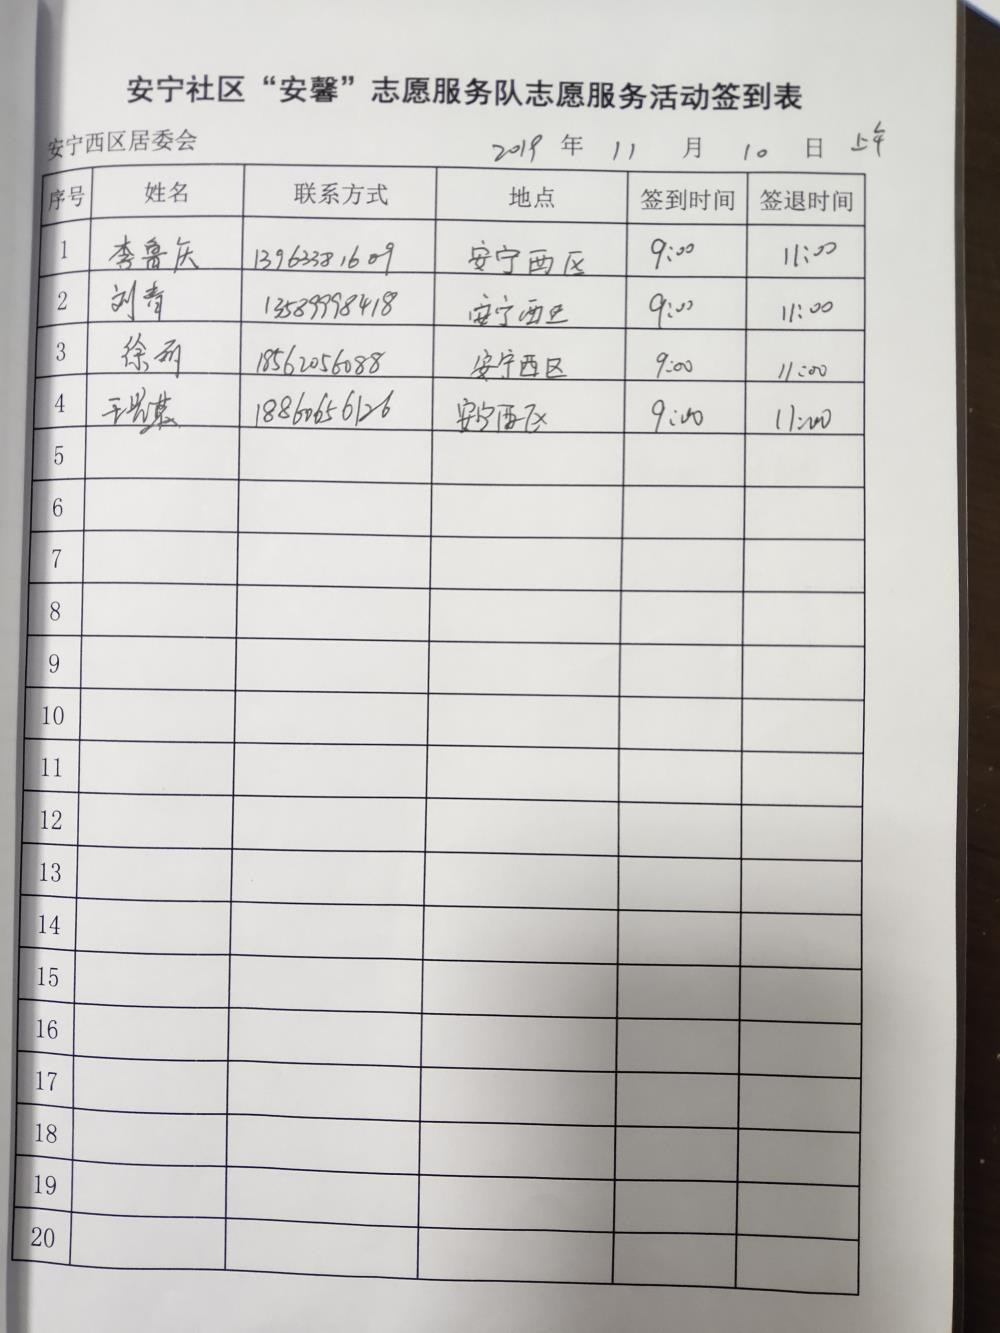 安宁社区“安馨”志愿服务队志愿服务活动签到表
安宁西区居委会 2019 年 11 月 10 日 上午
序号 姓名 联系方式 地点 签到时间 签退时间
1 李鲁庆 13963381609 安宁西区 9:00 11:00
2 刘青 13589998418 安宁西区 9:00 11:00
3 徐 18562056088 安宁西区 9:00 11:00
4 王 18860656126 安宁西区 9:00 11:00
5
6
7
8
9
10
11
12
13
14
15
16
17
18
19
20